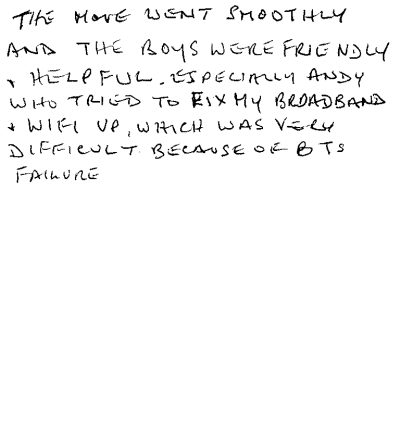 THE MOVE WENT SMOOTHLY
AND THE BOYS WERE FRIENDLY
+ HELPFUL. ESPECIALLY ANDY
WHO TRIED TO FIX MY BROADBAND
+ WIFI UP, WHICH WAS VERY
DIFFICULT BECAUSE OF BTS
FAILURE